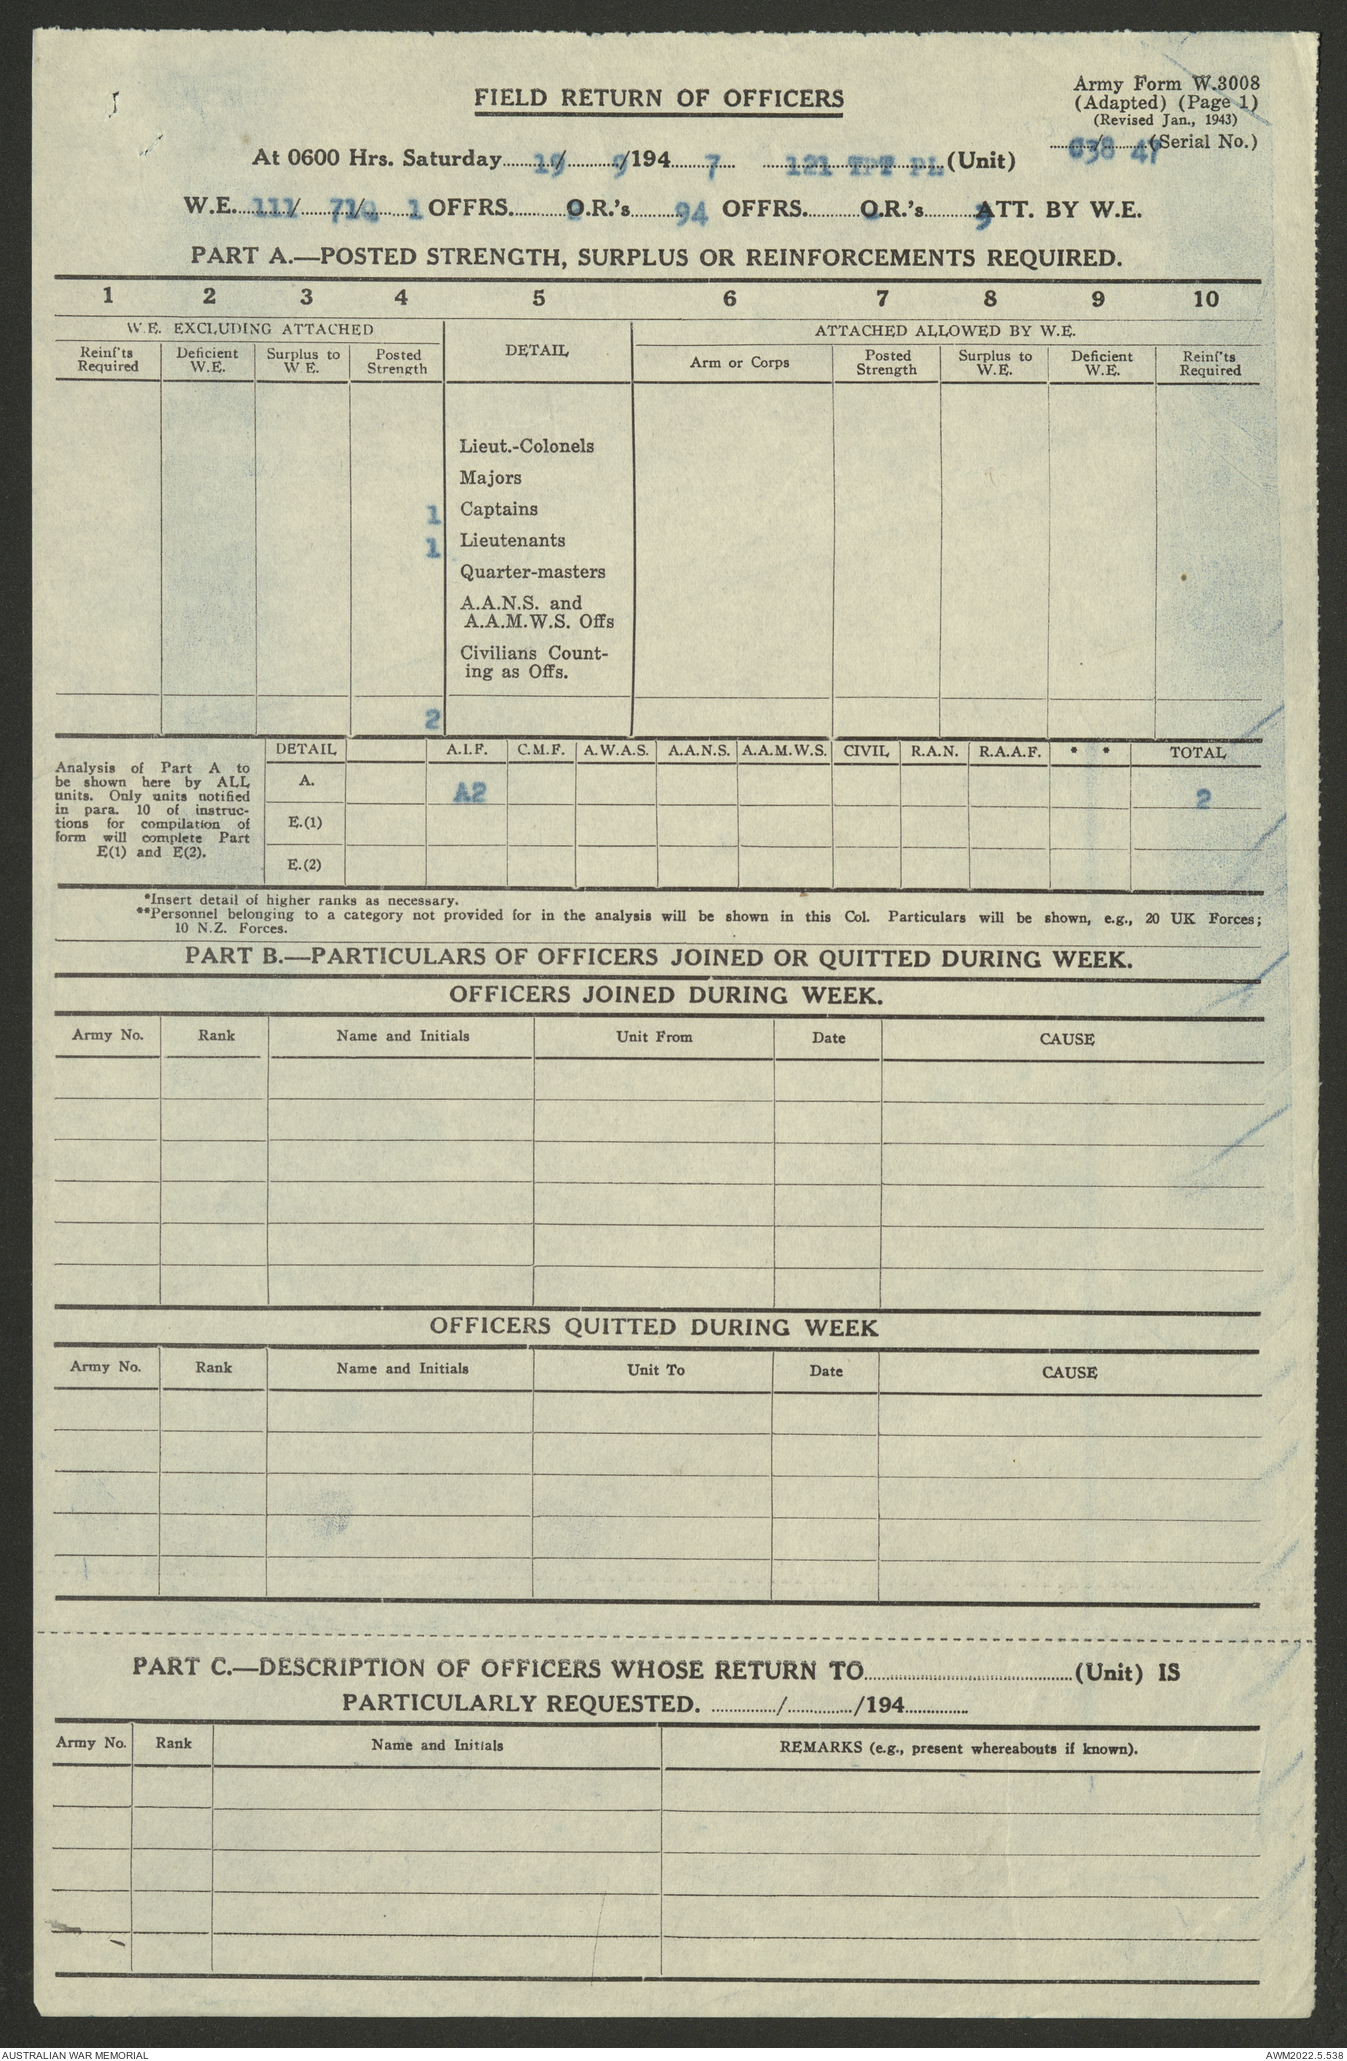 FIELD RETURN OF OFFICERS
Army Form W.3008
(Adapted) (Page 1)
(Revised Jan., 1943)
038/47 (Serial No.)
At 0600 Hrs. Saturday 19/ 9/194 7 121 TPT PL (Unit)
W.E. 111/ 71Q/ 1 OFFRS. O.R.'s 94 OFFRS. O.R.'s 9 ATT. BY W.E.
PART A.—POSTED STRENGTH, SURPLUS OR REINFORCEMENTS REQUIRED.
1 2 3 4 5 6 7 8 9 10
W.E. EXCLUDING ATTACHED DETAIL ATTACHED ALLOWED BY W.E.
Reinf'ts Required Deficient W.E. Surplus to W.E. Posted Strength Arm or Corps Posted Strength Surplus to W.E. Deficient W.E. Reinf'ts Required
Lieut.-Colonels
Majors
1 Captains
1 Lieutenants
Quarter-masters
A.A.N.S. and
A.A.M.W.S. Offs
Civilians Count-
ing as Offs.
2
DETAIL A.I.F. C.M.F. A.W.A.S. A.A.N.S. A.A.M.W.S. CIVIL R.A.N. R.A.A.F. * * TOTAL
Analysis of Part A to
be shown here by ALL
units. Only units notified
in para. 10 of instruc-
tions for compilation of
form will complete Part
E(1) and E(2).
A. A2 2
E.(1)
E.(2)
*Insert detail of higher ranks as necessary.
**Personnel belonging to a category not provided for in the analysis will be shown in this Col. Particulars will be shown, e.g., 20 UK Forces;
10 N.Z. Forces.
PART B.—PARTICULARS OF OFFICERS JOINED OR QUITTED DURING WEEK.
OFFICERS JOINED DURING WEEK.
Army No. Rank Name and Initials Unit From Date CAUSE
OFFICERS QUITTED DURING WEEK
Army No. Rank Name and Initials Unit To Date CAUSE
PART C.—DESCRIPTION OF OFFICERS WHOSE RETURN TO (Unit) IS
PARTICULARLY REQUESTED. / /194
Army No. Rank Name and Initials REMARKS (e.g., present whereabouts if known).
AUSTRALIAN WAR MEMORIAL
AWM2022.5.538